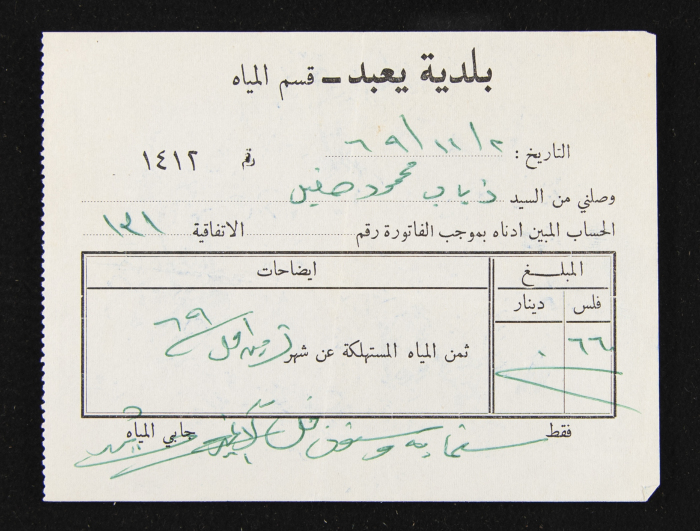 بلدية يعبد ـ قسم المياه
التاريخ : ٢/١١/٦٩ رقم ١٤١٢
وصلني من السيد ذياب محمود
الحساب المبين ادناه بموجب الفاتورة رقم الاتفاقية ١٣١
المبلغ ايضاحات
فلس دينار
٦٦٠ ٠ ثمن المياه المستهلكة عن شهر تشرين اول ٦٩
فقط ستماية وستون فلس لاغير جابي المياه